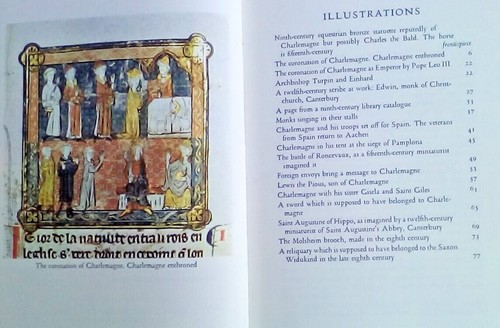 The coronation of Charlemagne. Charlemagne enthroned
ILLUSTRATIONS
Ninth-century equestrian bronze statuette reputedly of
Charlemagne but possibly Charles the Bald. The horse
is fifteenth-century frontispiece
The coronation of Charlemagne. Charlemagne enthroned 6
The coronation of Charlemagne as Emperor by Pope Leo III 22
Archbishop Turpin and Einhard 22
A twelfth-century scribe at work: Edwin, monk of Christ-
church, Canterbury 27
A page from a ninth-century library catalogue 31
Monks singing in their stalls 37
Charlemagne and his troops set off for Spain. The veterans
from Spain return to Aachen 41
Charlemagne in his tent at the siege of Pamplona 45
The battle of Roncevaux, as a fifteenth-century miniaturist
imagined it 49
Foreign envoys bring a message to Charlemagne 53
Lewis the Pious, son of Charlemagne 57
Charlemagne with his sister Gisela and Saint Giles 61
A sword which is supposed to have belonged to Charle-
magne 65
Saint Augustine of Hippo, as imagined by a twelfth-century
miniaturist of Saint Augustine's Abbey, Canterbury 69
The Molsheim brooch, made in the eighth century 73
A reliquary which is supposed to have belonged to the Saxon
Widukind in the late eighth century 77